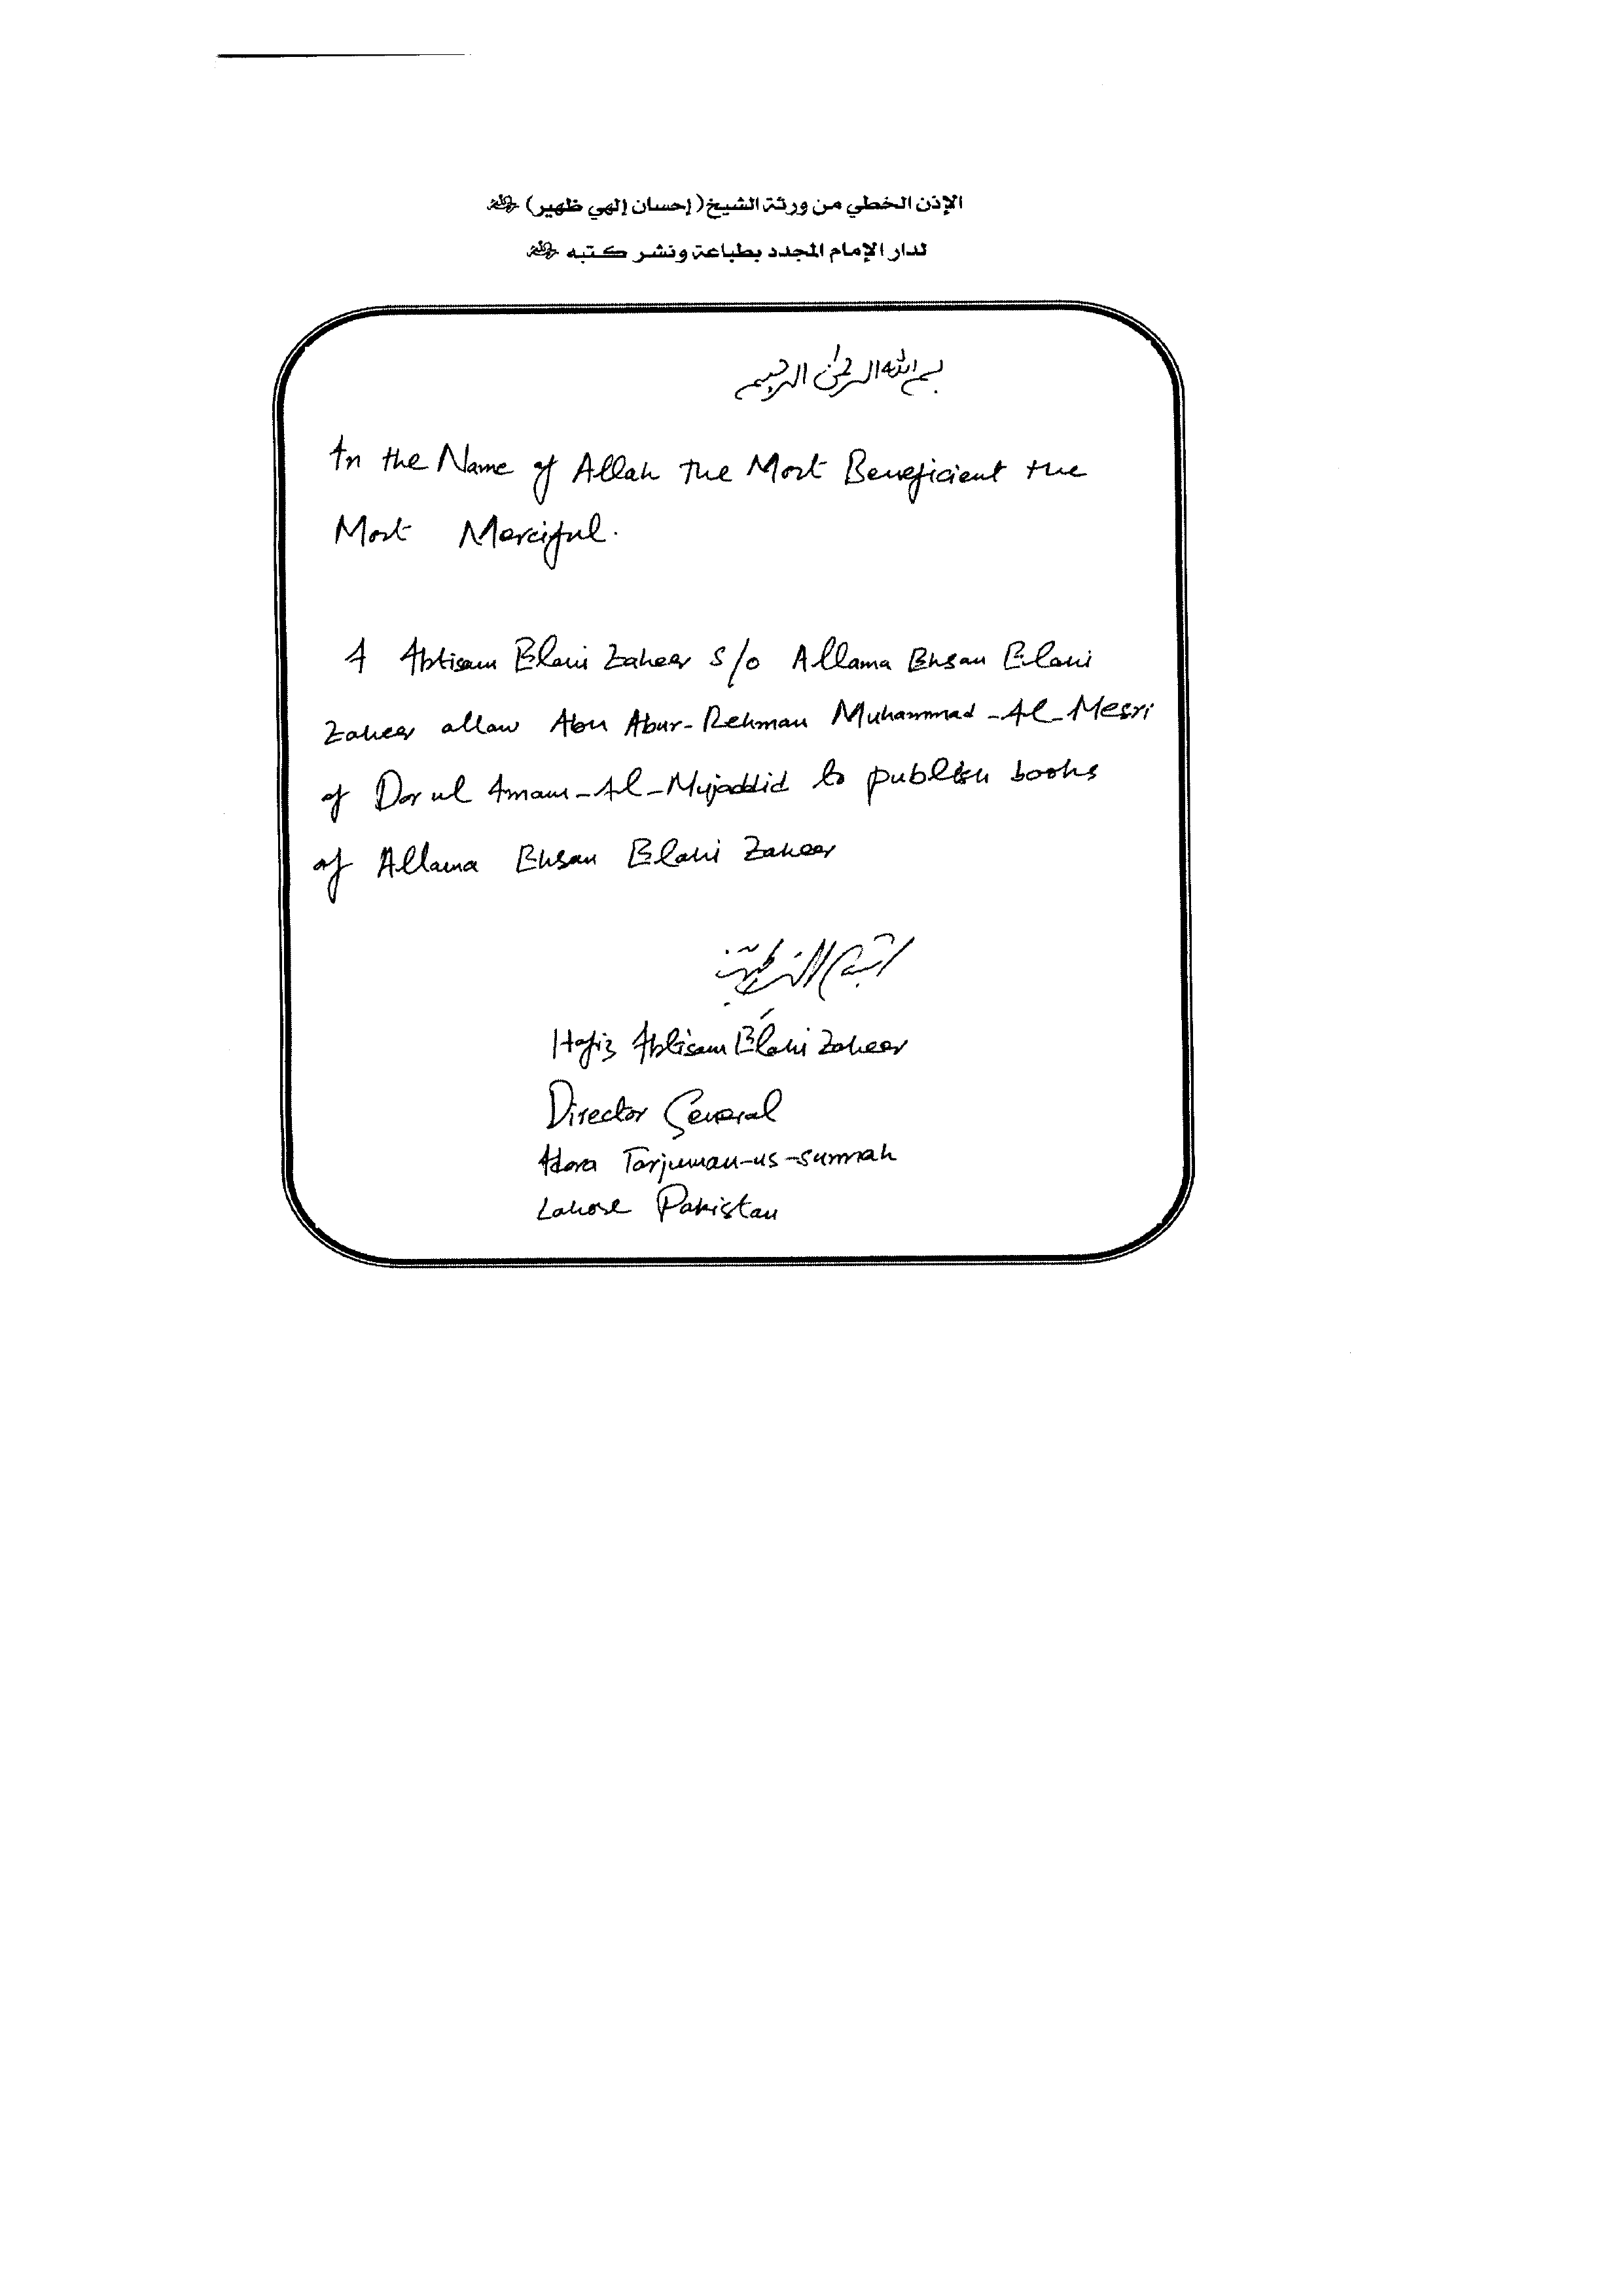 الإذن الخطي من ورثة الشيخ (إحسان إلهي ظهير) رحمه الله
لدار الإمام المجدد بطباعة ونشر كتبه رحمه الله
بسم الله الرحمن الرحيم
In the Name of Allah The Most Beneficient the
Most Merciful.
I Ibtisam Elahi Zaheer s/o Allama Ehsan Elahi
Zaheer allow Abu Abur-Rehman Muhammad-Al-Mesri
of Dar ul Imam-Al-Mujaddid to publish books
of Allama Ehsan Elahi Zaheer
ابتسام الہی ظہیر
Hafiz Ibtisam Elahi Zaheer
Director General
Idara Tarjuman-us-sunnah
Lahore Pakistan